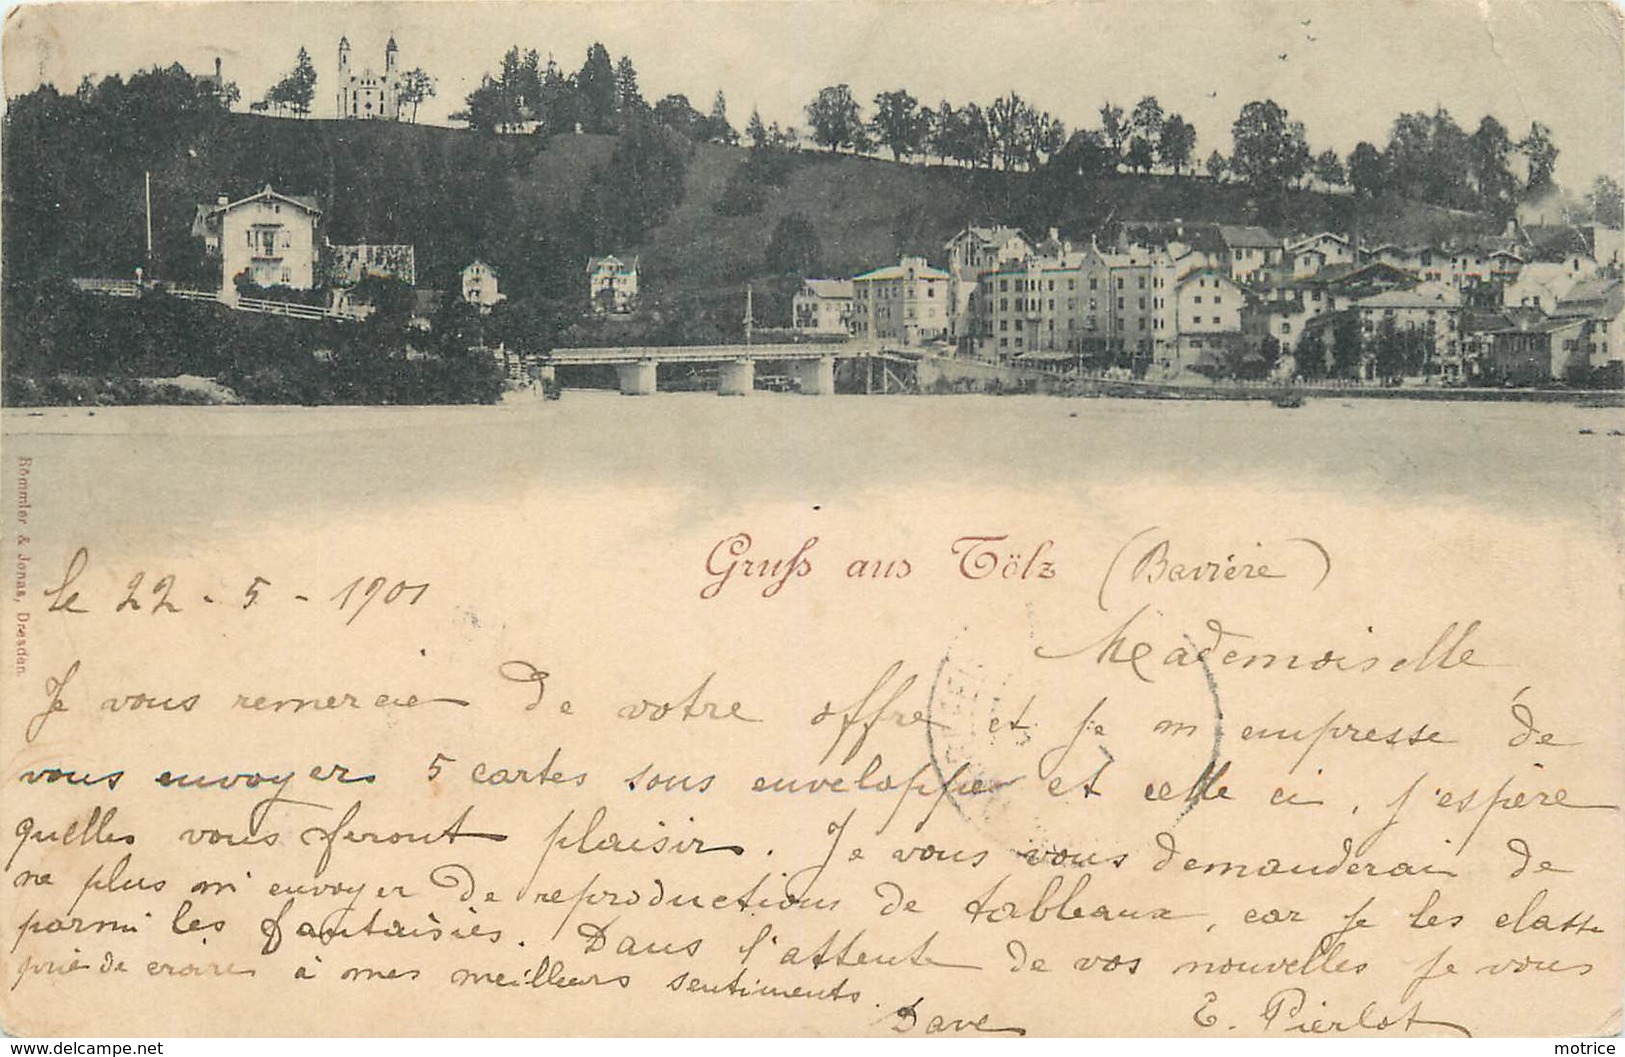 Gruss aus Tölz (Bavière)
le 22 - 5 - 1901
Mademoiselle
Je vous remercie de votre offre et je m'empresse de
vous envoyer 5 cartes sous enveloppe et celle ci, j'espère
quelles vous feront plaisir. Je vous vous demanderai de
ne plus m'envoyer de reproductions de tableaux, car je les classe
parmi les fantaisies. Dans l'attente de vos nouvelles je vous
prie de croire à mes meilleurs sentiments.
Dave E. Pierlot
Römmler & Jonas, Dresden.
https://www.delcampe.net
motrice